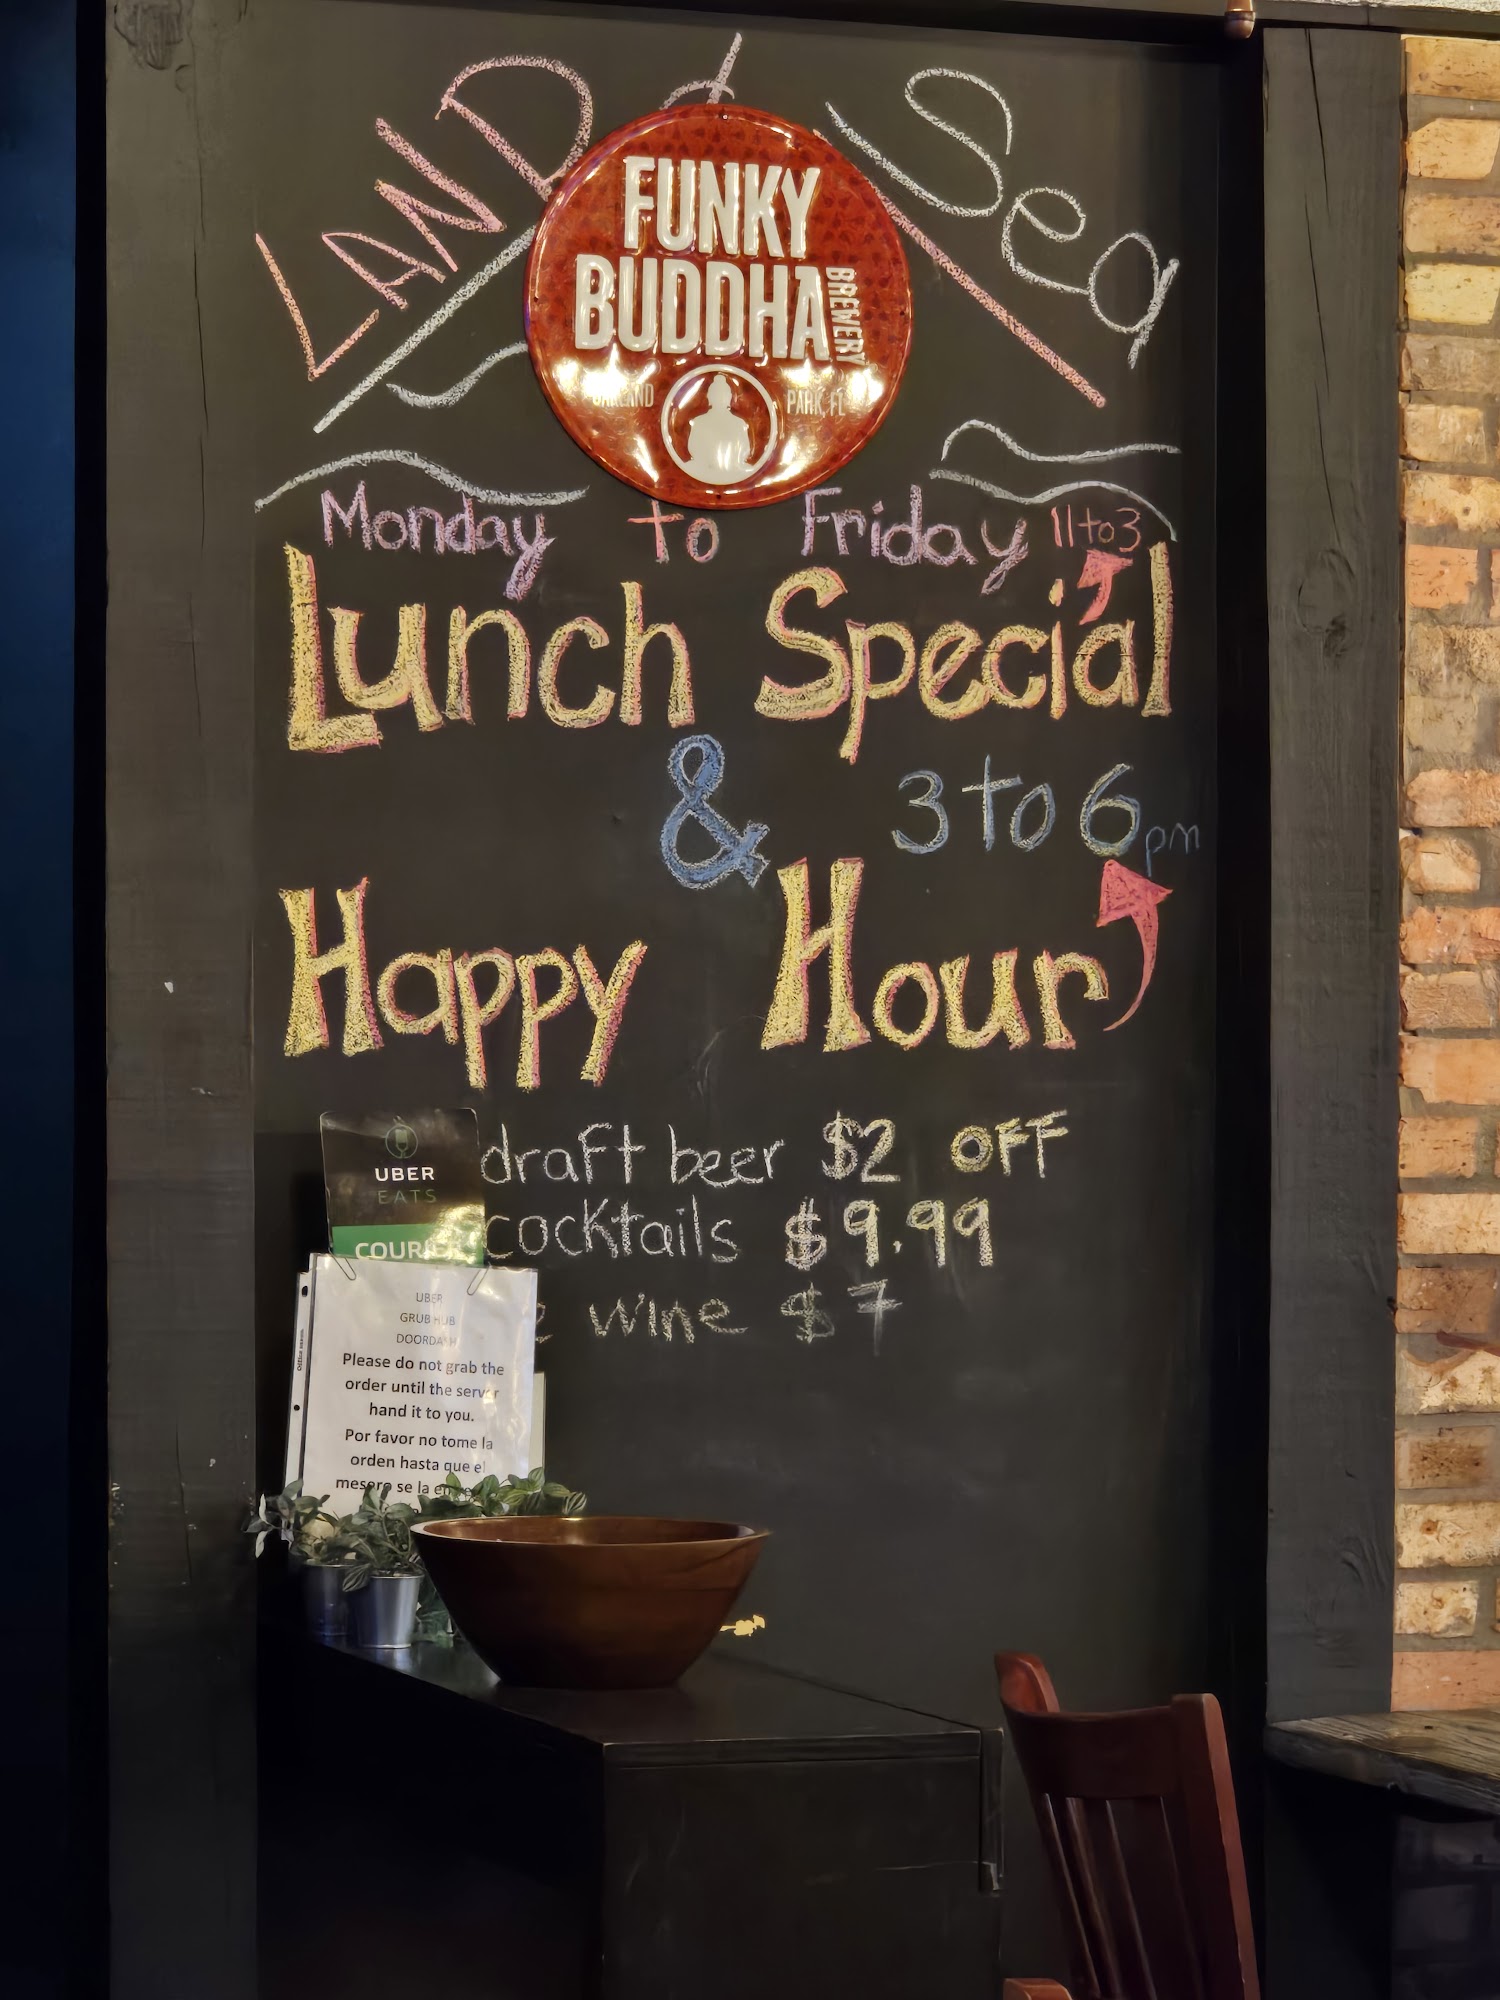 LAND & Sea
FUNKY
BUDDHA
BREWERY
OAKLAND PARK, FL
Monday to Friday 11 to 3
Lunch Special
& 3 to 6 pm
Happy Hour
draft beer $2 OFF
cocktails $9.99
wine $7
UBER
EATS
UBER
GRUB HUB
DOORDASH
Please do not grab the
order until the server
hand it to you.
Por favor no tome la
orden hasta que el
mesero se la
Office